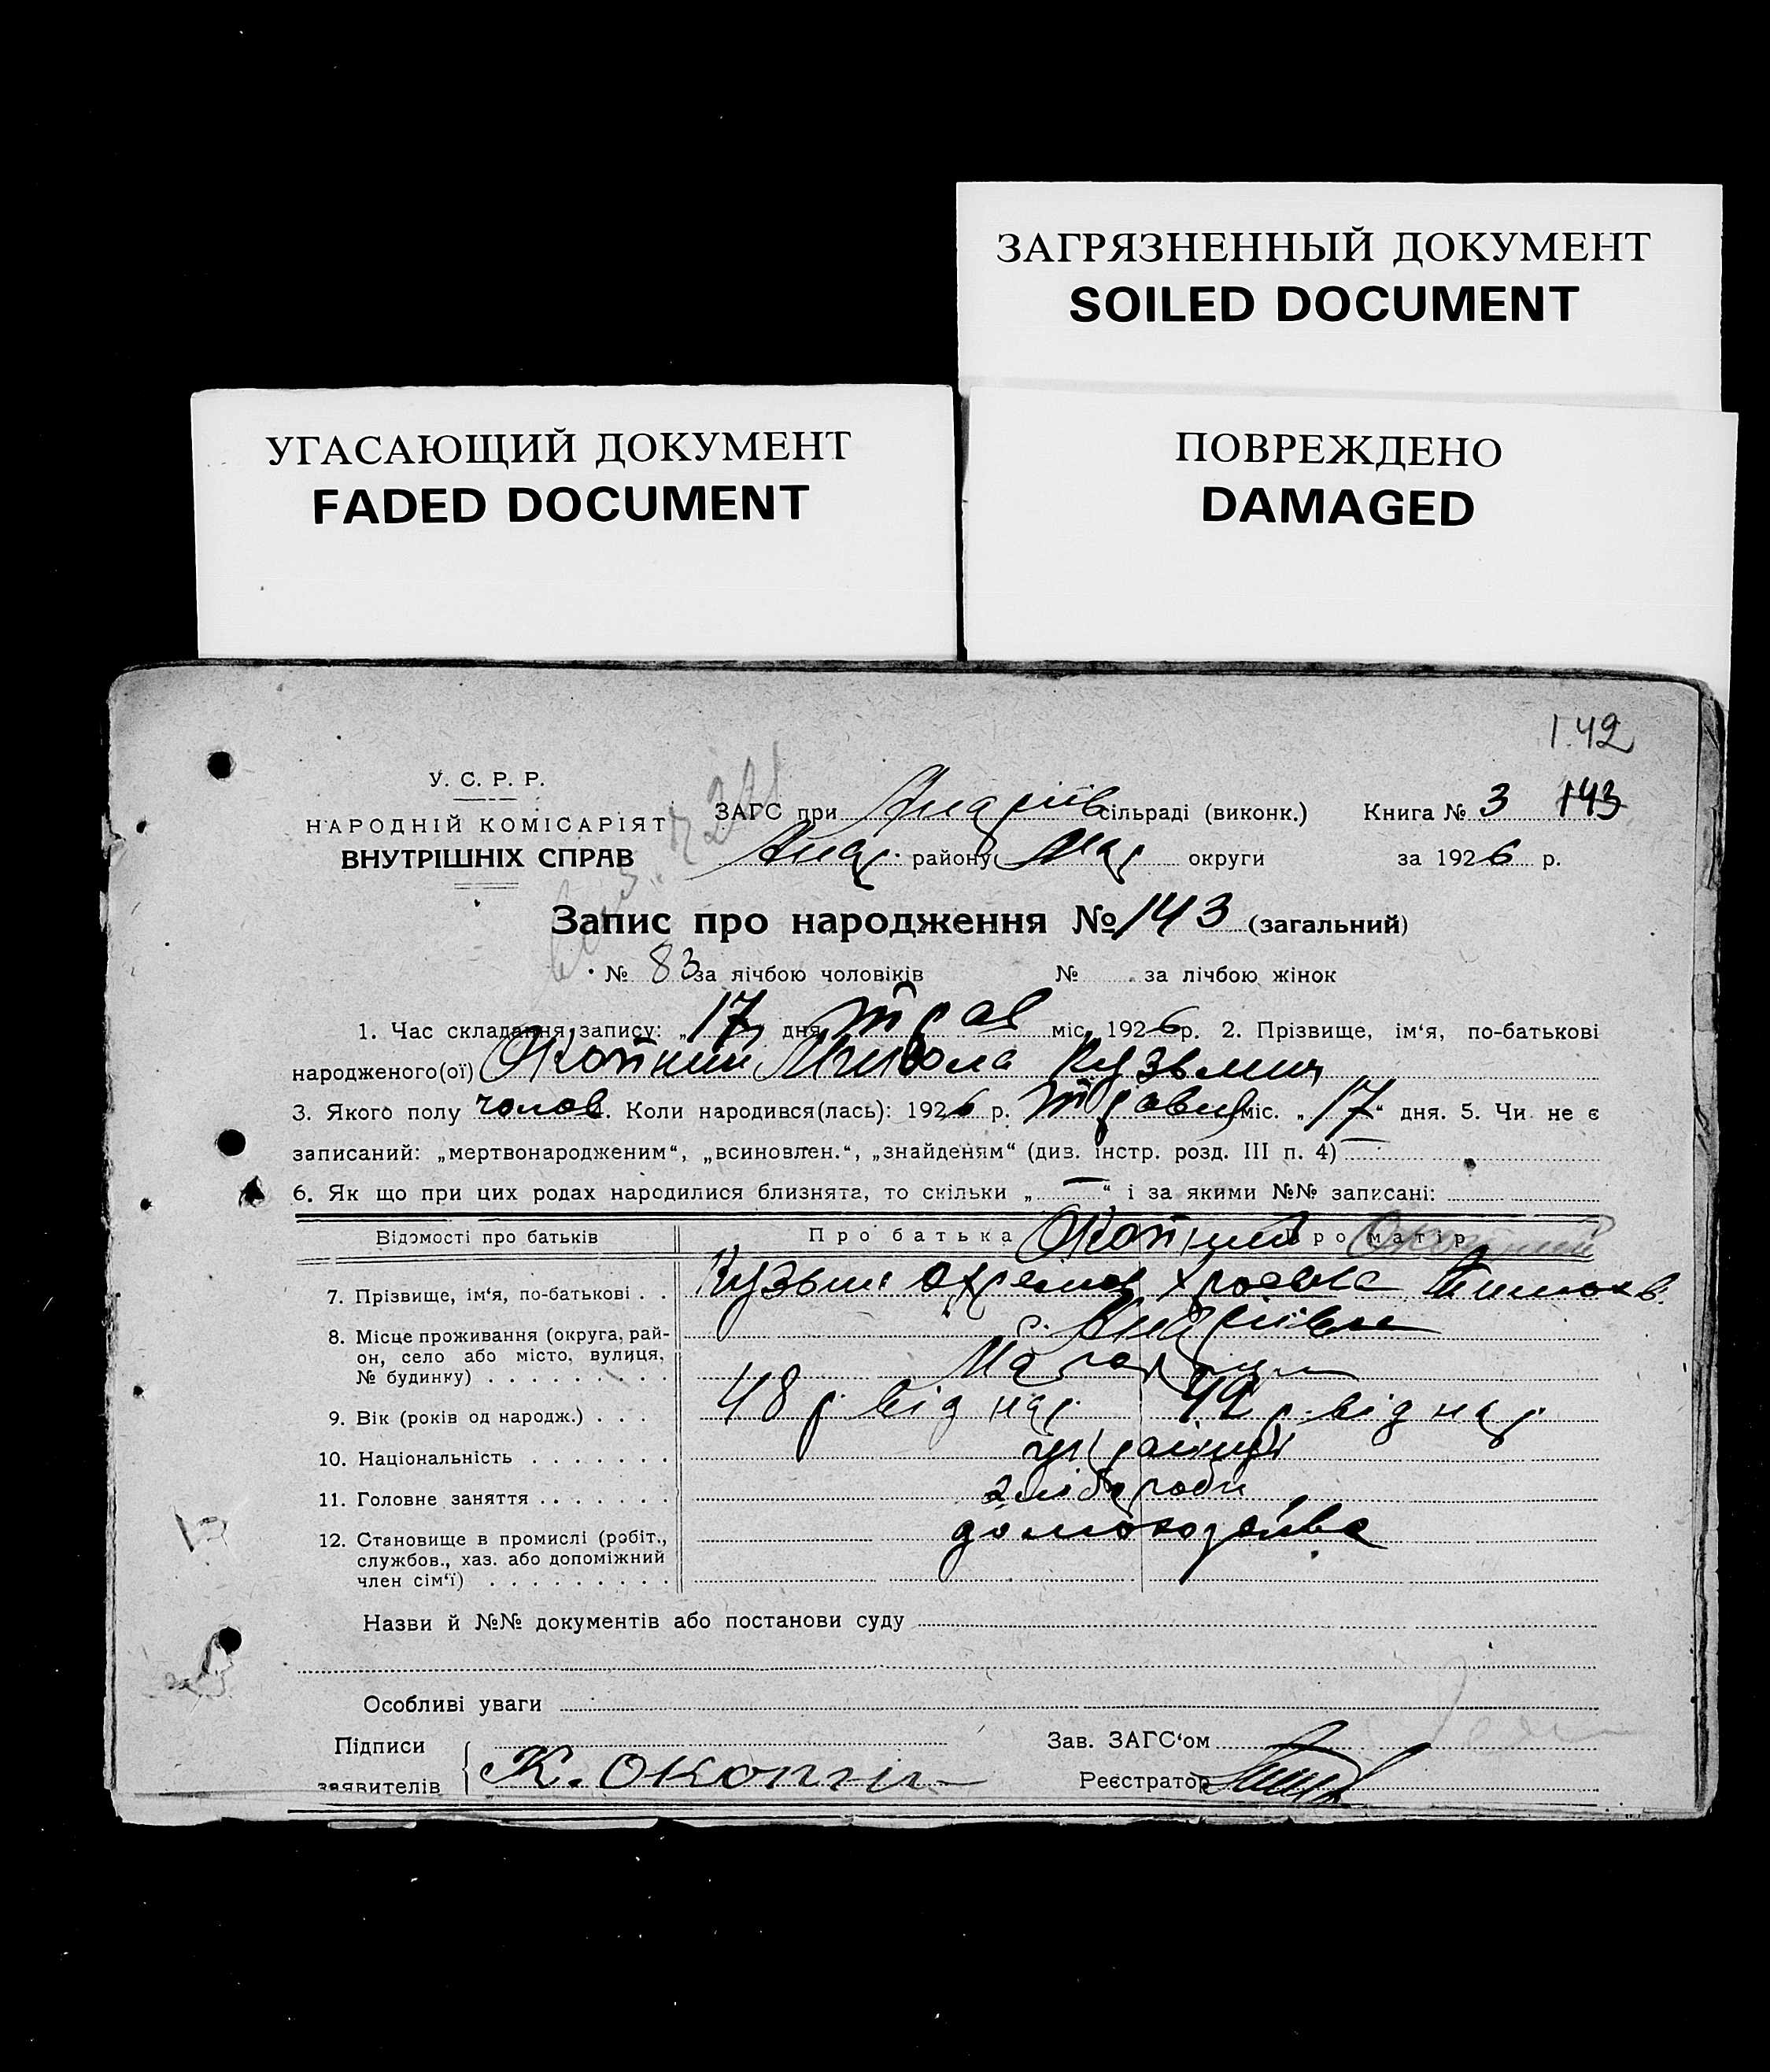 ЗАГРЯЗНЕННЫЙ ДОКУМЕНТ
SOILED DOCUMENT
УГАСАЮЩИЙ ДОКУМЕНТ
FADED DOCUMENT
ПОВРЕЖДЕНО
DAMAGED
142
У. С. Р. Р.
НАРОДНІЙ КОМІСАРІЯТ
ВНУТРІШНІХ СПРАВ
ЗАГС при Андріїв сільраді (виконк.) Книга № 3 143
Анд. району Мар округи за 1926 р.
Запис про народження № 143 (загальний)
№ 83 за лічбою чоловіків № за лічбою жінок
1. Час складання запису: „17„ дня трав міс. 1926 р. 2. Прізвище, ім‘я, по-батькові
народженого(ої) Окопний Микола Кузьмич
3. Якого полу чолов 4. Коли народився(лась): 1926 р. травня міс. „17“ дня. 5. Чи не є
записаний: „мертвонародженим“, „всиновлен.“, „знайденям“ (див. інстр. розд. III п. 4) —
6. Як що при цих родах народилися близнята, то скільки „—“ і за якими №№ записані:
Відомості про батьків Про батька Окопний Про матір
7. Прізвище, ім‘я, по-батькові . . Кузьма
8. Місце проживання (округа, рай-
он, село або місто, вулиця,
№ будинку) . . . . . . . . .
с. Андріївка
9. Вік (років од народж.) . . . 48 р. від нар. 42 р. від нар.
10. Національність . . . . . . . українці
11. Головне заняття . . . . . . хлібороби
12. Становище в промислі (робіт.,
службов., хаз. або допоміжний
член сім‘ї) . . . . . . . . .
Назви й №№ документів або постанови суду
Особливі уваги
Підписи
заявителів
К. Окопни
Зав. ЗАГС‘ом
Реєстратор